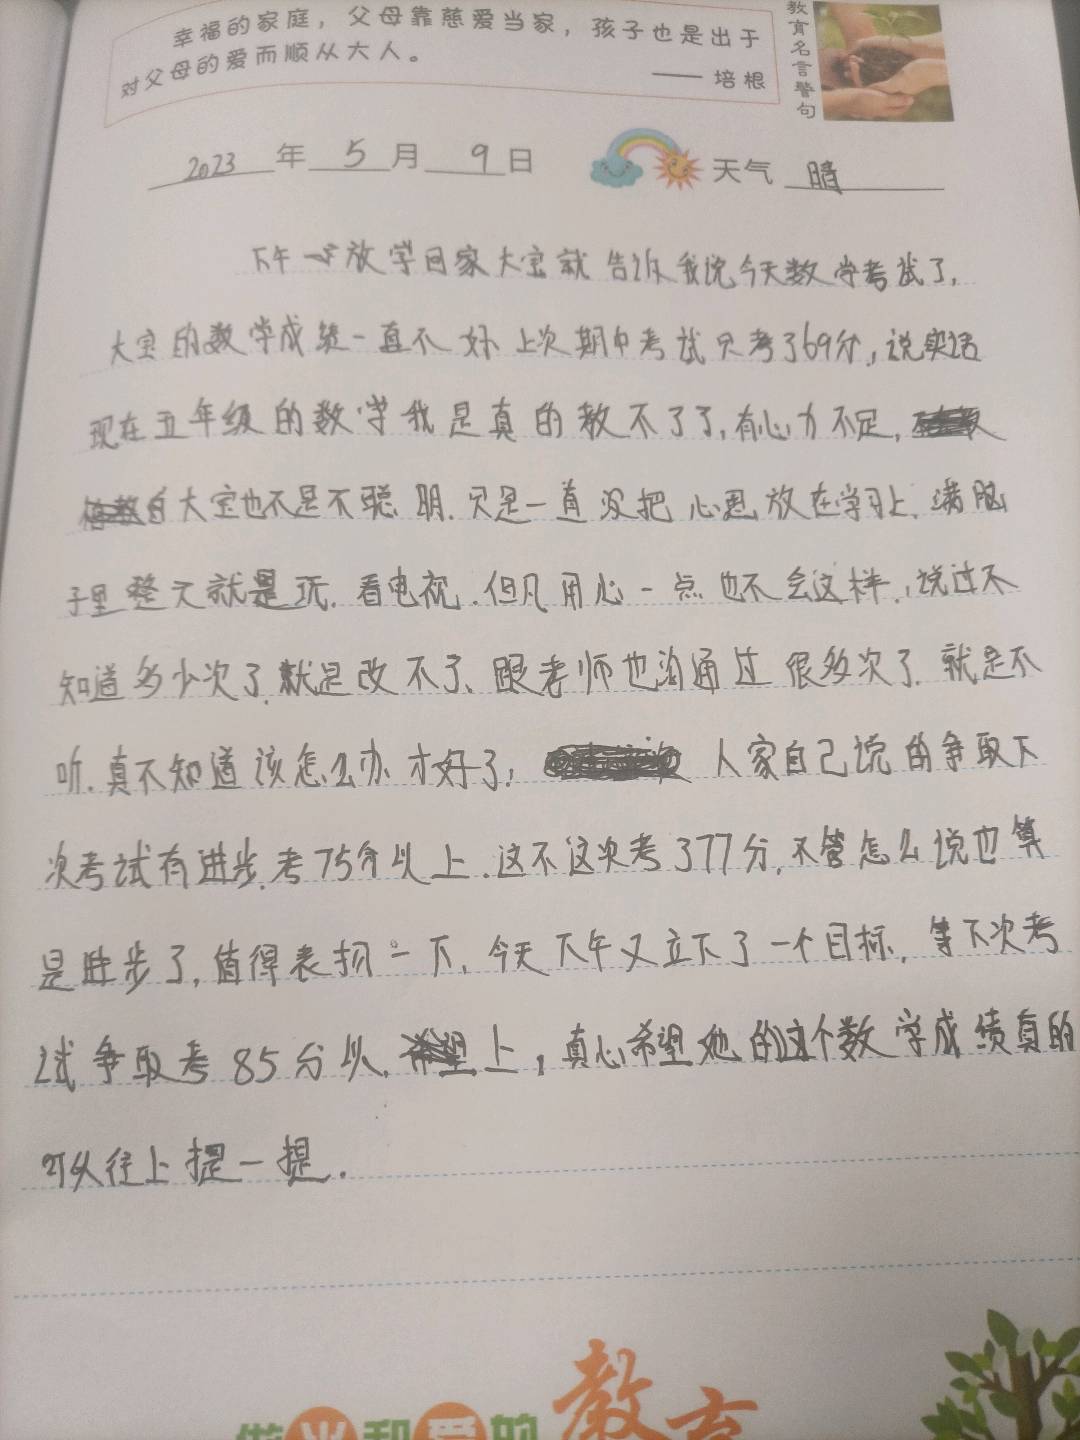 幸福的家庭，父母靠慈爱当家，孩子也是出于
对父母的爱而顺从大人。
—— 培根
教育名言警句
2023年5月9日 天气 晴
下午一放学回家大宝就告诉我说今天数学考试了，
大宝的数学成绩一直不好上次期中考试只考了69分，说实话
现在五年级的数学我是真的教不了了，有心力不足，
大宝也不是不聪明.只是一直没把心思放在学习上.满脑
子里整天就是玩.看电视.但凡用心一点也不会这样.说过不
知道多少次了.就是改不了、跟老师也沟通过很多次了.就是不
听.真不知道该怎么办才好了，人家自己说的争取下
次考试有进步.考75分以上.这不这次考了77分，不管怎么说也算
是进步了，值得表扬一下，今天下午又立下了一个目标，等下次考
试争取考85分以上，真心希望她的这个数学成绩真的
可以往上提一提.
做光和爱的教育